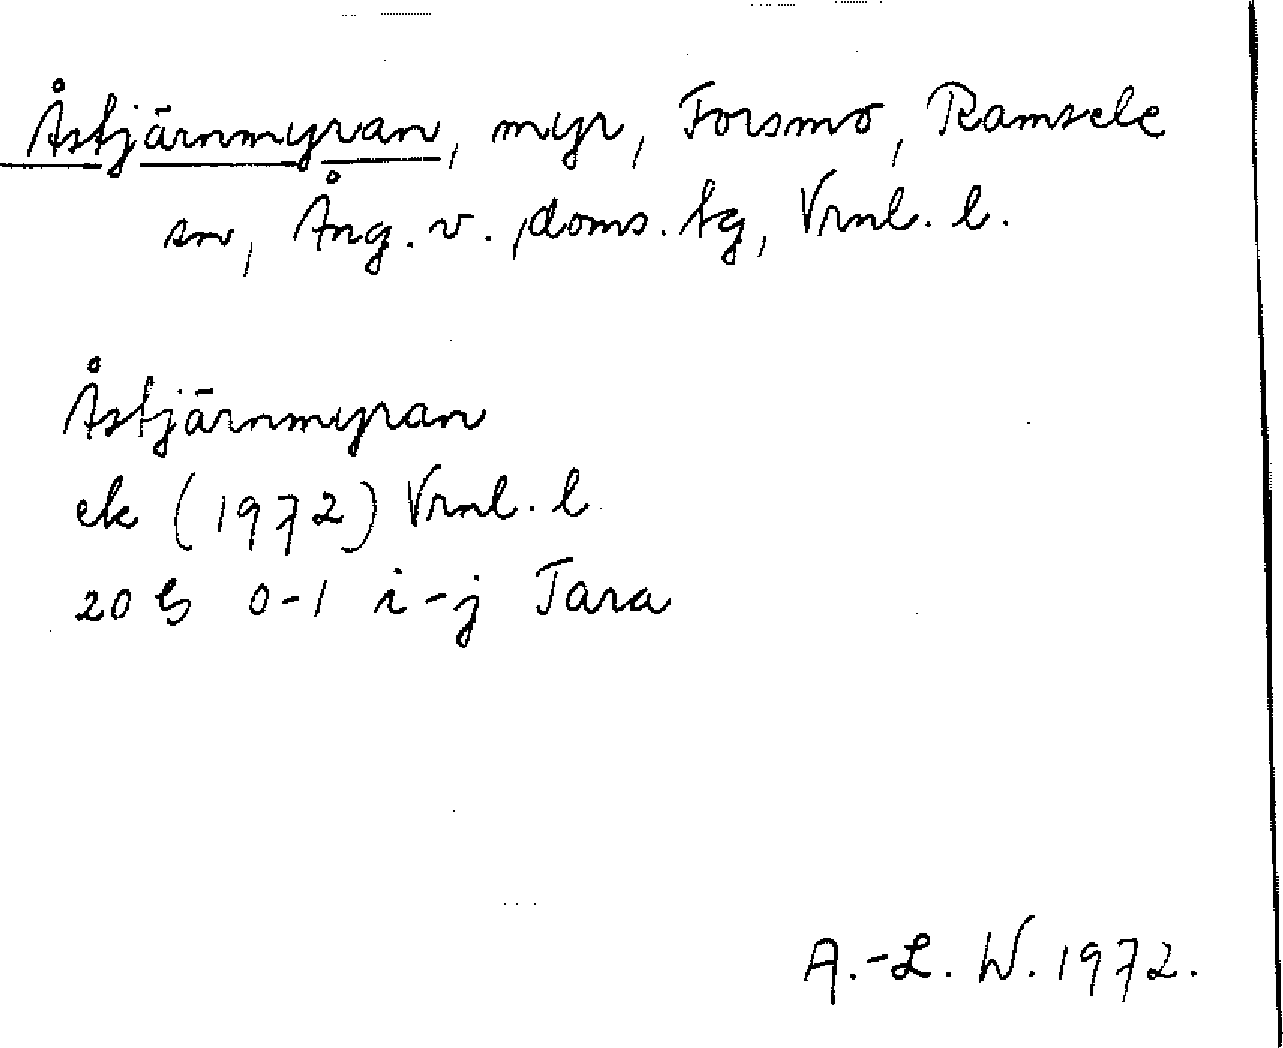 Åstjärnmyran, myr, Forsmo, Ramsele
sn, Ång. v. doms. tg, Vrnl. l.
Åstjärnmyran
ek (1972) Vrnl. l
20 G 0-1 i-j Tara
A.-L. W. 1972.